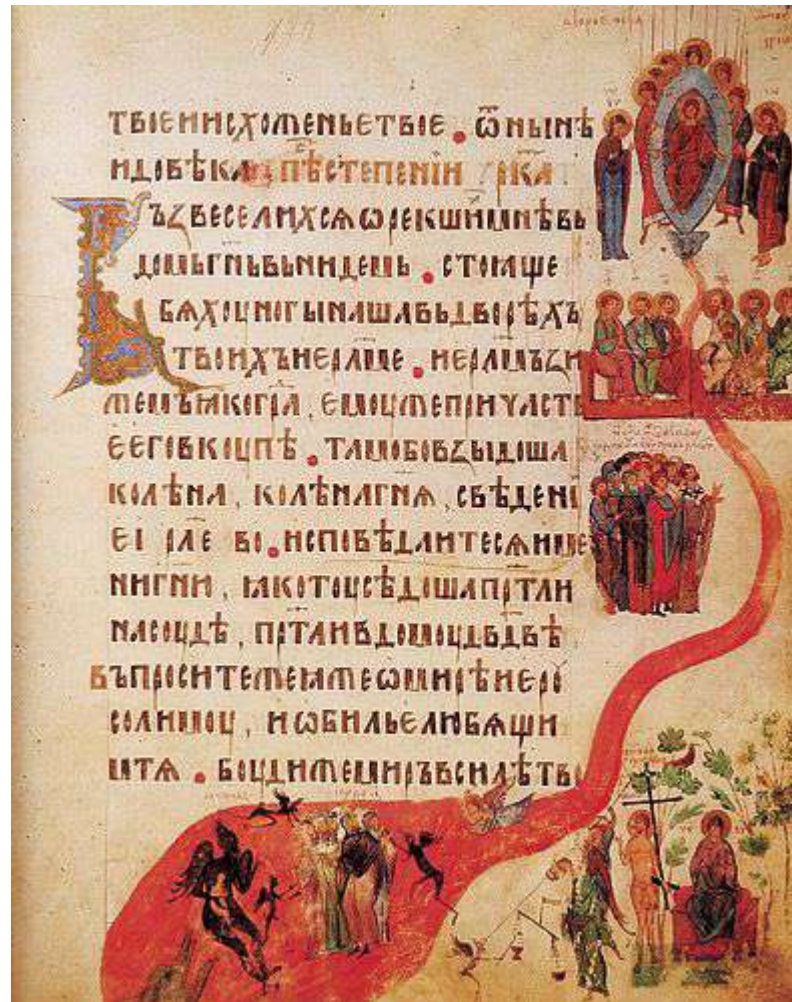 твоенисхоженьетвое . ѿнынѣ
идовѣка пѣⷭ҇степенін рка
Възвеселихсѧѡрекшиⷯмнѣвь
домьгн҃ьвьнидемь . стоꙗще
бѧхоуногынашавьдворѣхъ
твоихъиерⷭ҇лме . иерⷭ҇лмъзи
жемъꙗкогра , емоужепричасть
еговкоупѣ . тамобовзыдоша
колѣна , колѣнагн҃ѧ , свѣдени
еі҆ рл҃е во . исповѣдаитесѧиме
нигн҃и , ꙗкотоусѣдошапрⷭ҇тли
насоудѣ , прⷭ҇тливдомоудв҃двѣ
въпроситежеꙗжеѡмирѣиеро
солимоу , иѡбильелюбѧщи
мтѧ . боудижемиръвсилѣтво